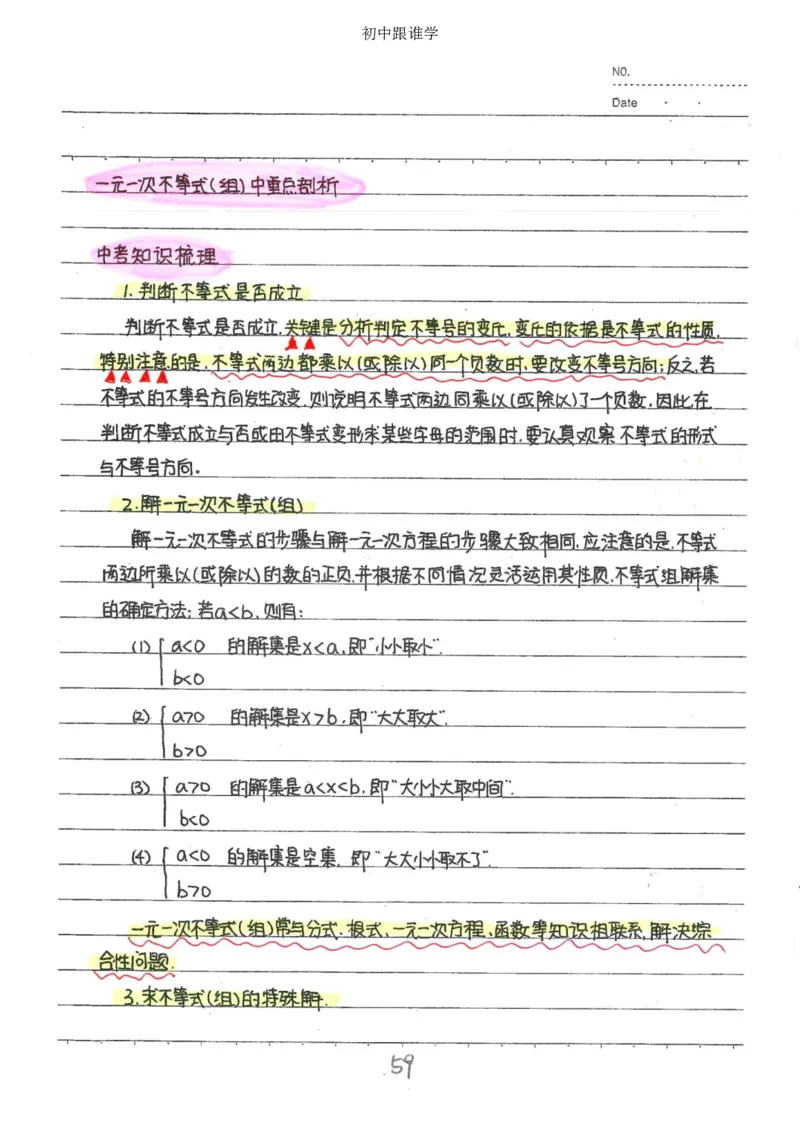 初中跟谁学
NO.
Date
一元一次不等式(组)中重点剖析
中考知识梳理
1.判断不等式是否成立
判断不等式是否成立,关键是分析判定不等号的变化,变化的依据是不等式的性质,
特别注意的是,不等式两边都乘以(或除以)同一个负数时,要改变不等号方向;反之,若
不等式的不等号方向发生改变,则说明不等式两边同乘以(或除以)了一个负数.因此,在
判断不等式成立与否或由不等式变形求某些字母的范围时,要认真观察不等式的形式
与不等号方向。
2.解一元一次不等式(组)
解一元一次不等式的步骤与解一元一次方程的步骤大致相同,应注意的是,不等式
两边所乘以(或除以)的数的正负,并根据不同情况灵活运用其性质,不等式组解集
的确定方法;若a<b,则有:
(1) a<0 的解集是x<a,即"小小取小".
b<0
(2) a>0 的解集是x>b,即"大大取大".
b>0
(3) a>0 的解集是a<x<b,即"大小小大取中间".
b<0
(4) a<0 的解集是空集,即"大大小小取不了".
b>0
一元一次不等式(组)常与分式、根式、一元一次方程、函数等知识相联系,解决综
合性问题.
3.求不等式(组)的特殊解.
59